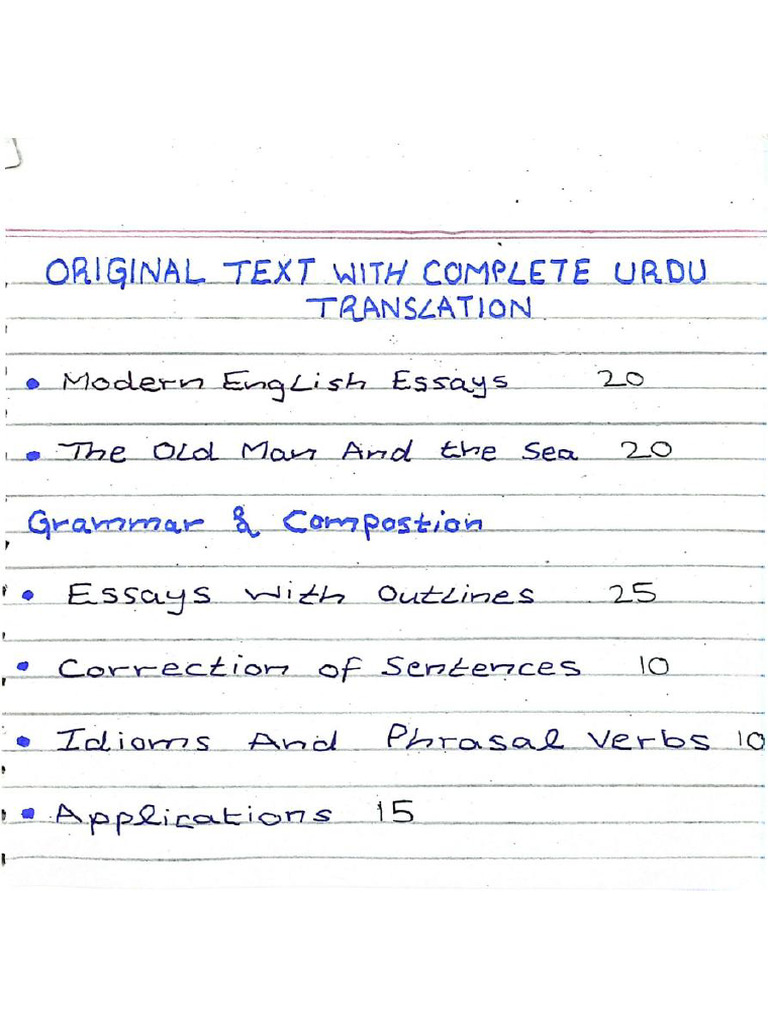 ORIGINAL TEXT WITH COMPLETE URDU
TRANSLATION
• Modern English Essays 20
• The Old Man And the Sea 20
Grammar & Compostion
• Essays with Outlines 25
• Correction of Sentences 10
• Idioms And Phrasal Verbs 10
• Applications 15